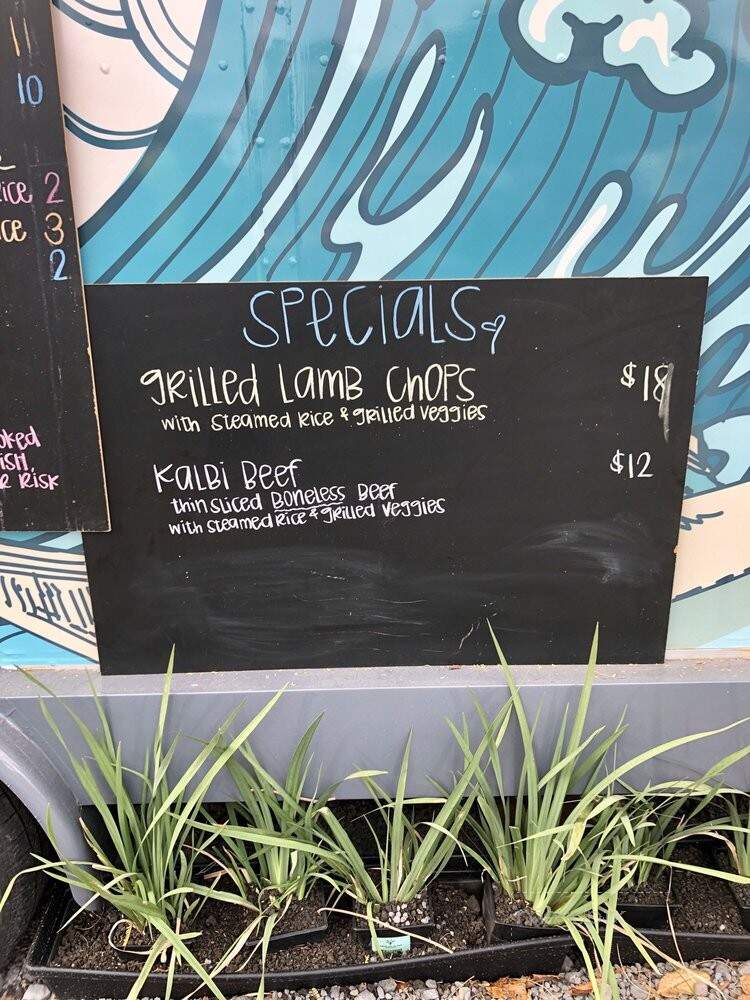 11
10
2
3
2
RISK
SPECIALS
GRILLED LAMB CHOPS $18
with Steamed Rice & grilled veggies
KALBI BEEF $12
thin sliced BONELESS BEEF
with steamed Rice & grilled veggies